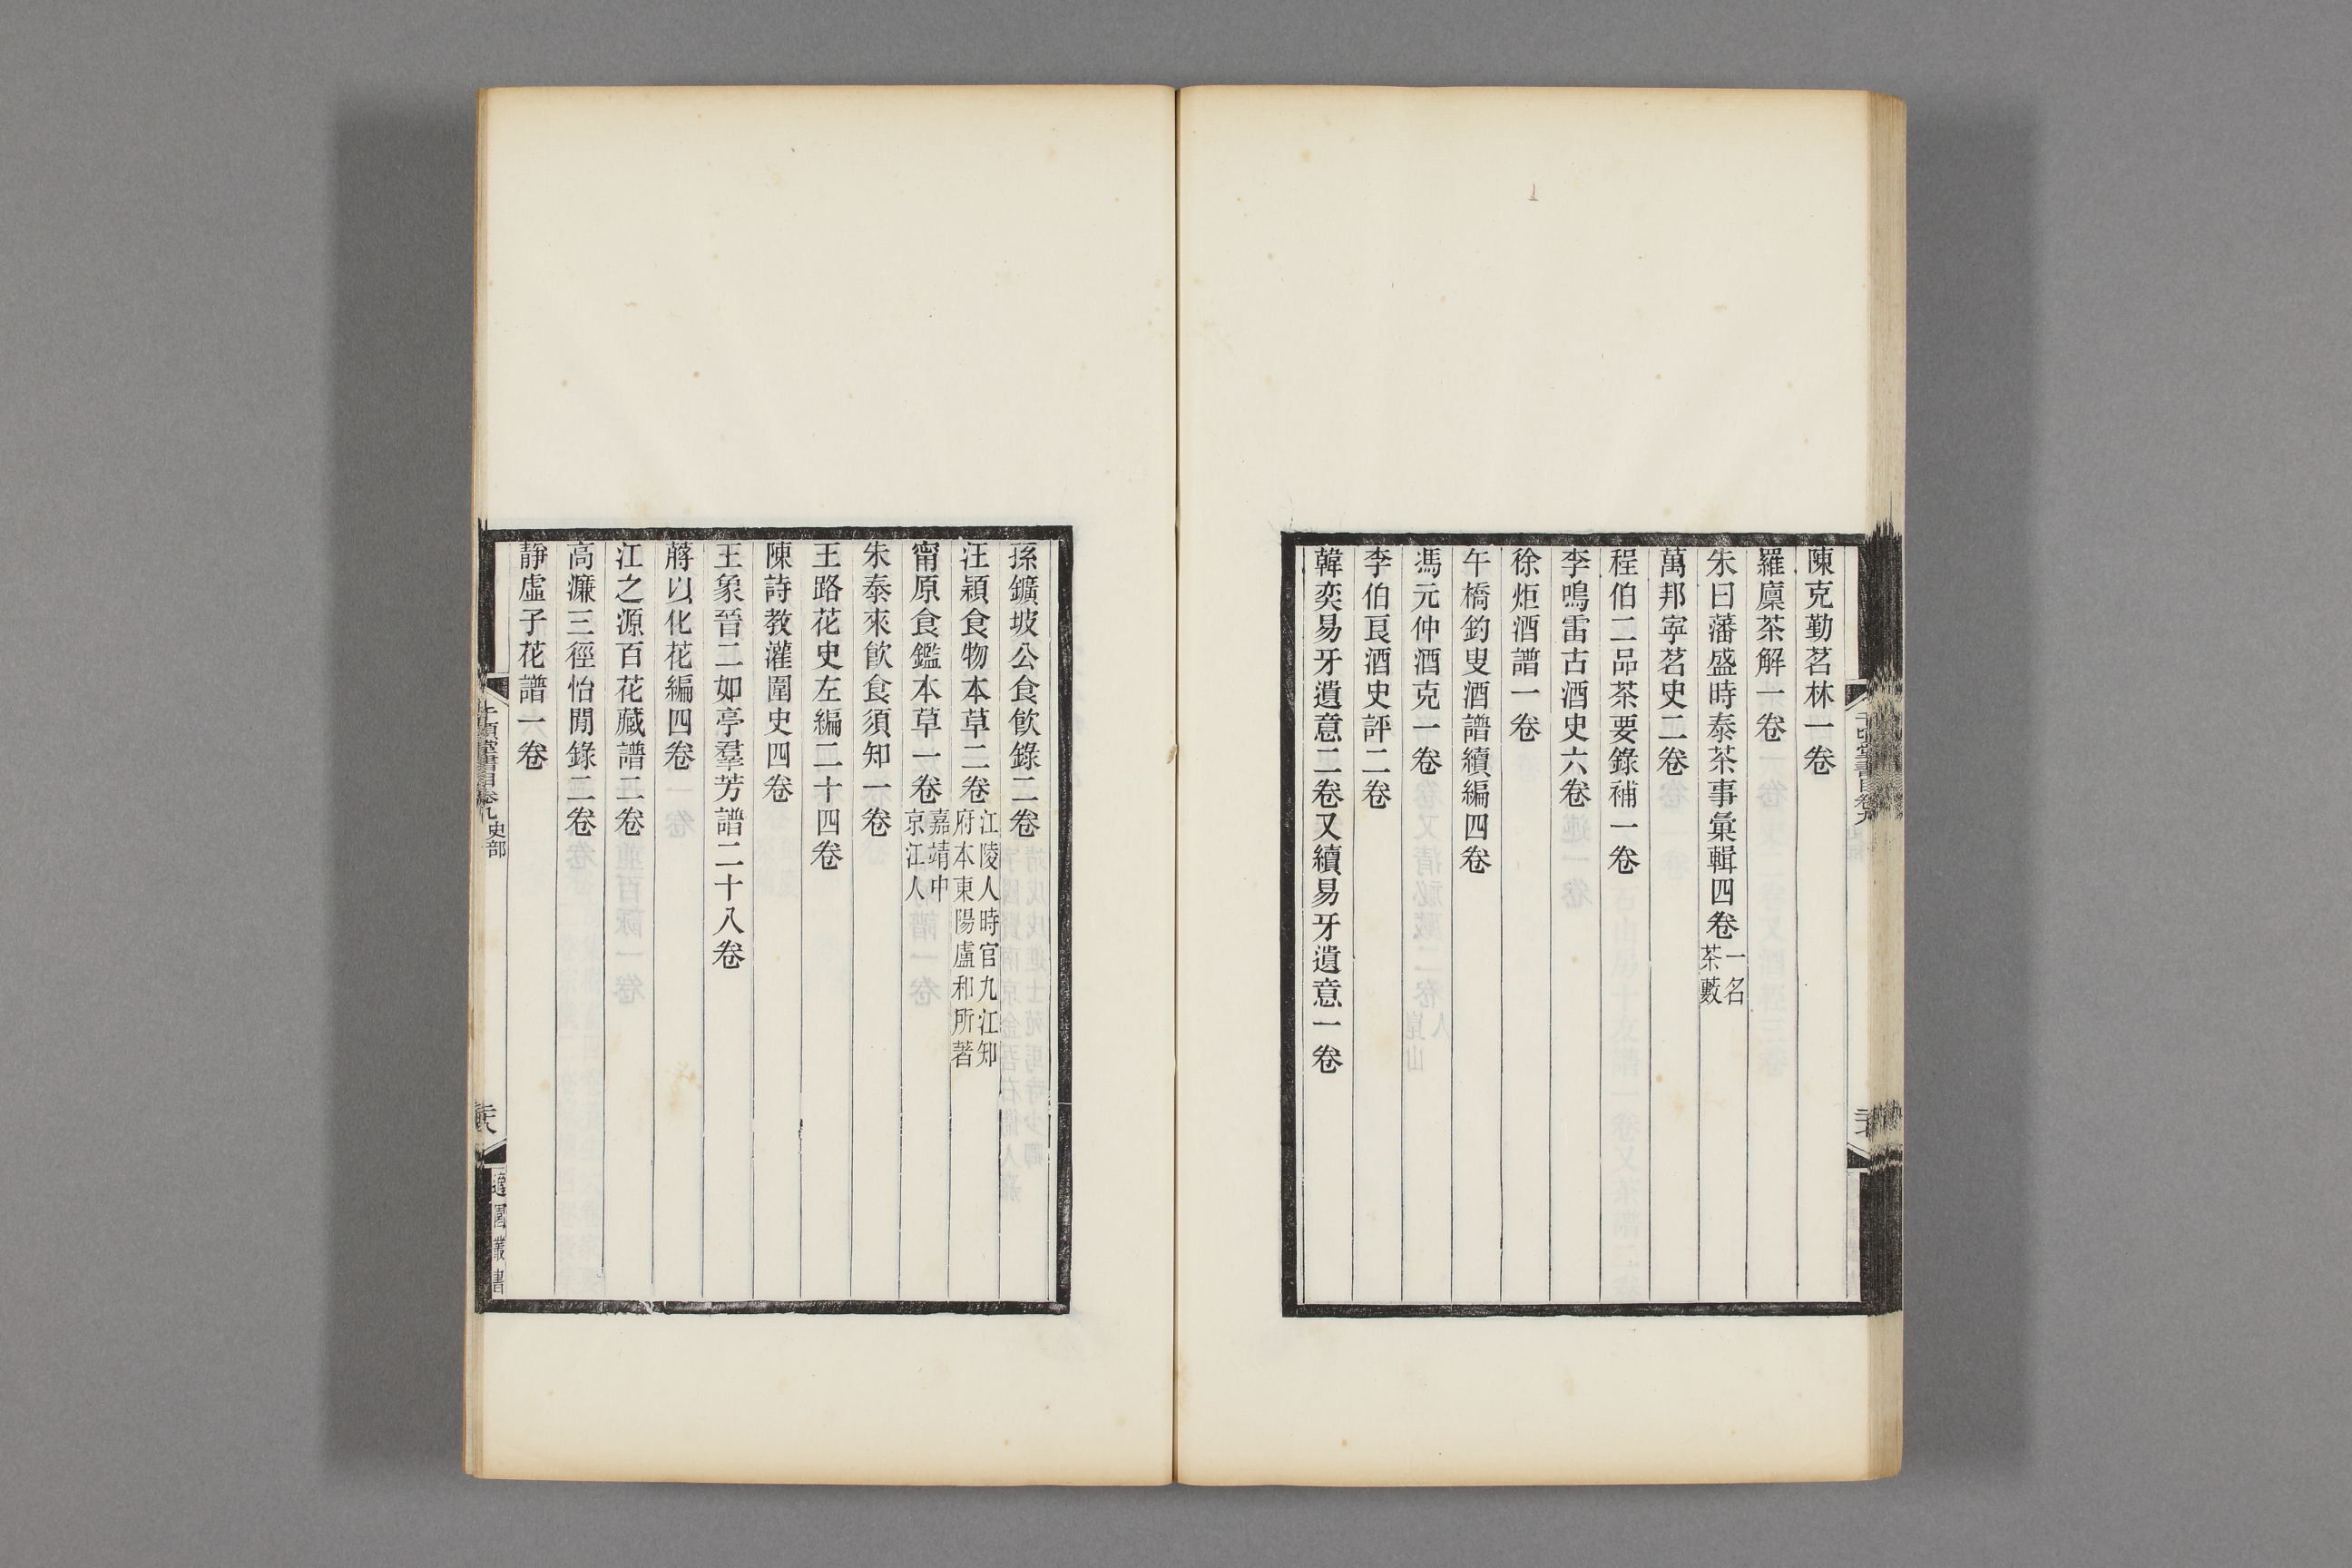 陳克勤茗林一卷
羅廩茶解一卷
朱曰藩盛時泰茶事彙輯四卷一名茶藪
萬邦寧茗史二卷
程伯二品茶要錄補一卷
李鳴雷古酒史六卷
徐炬酒譜一卷
午橋釣叟酒譜續編四卷
馮元仲酒克一卷
李伯良酒史評二卷
韓奕易牙遺意二卷又續易牙遺意一卷
孫鑛坡公食飲錄二卷
汪穎食物本草二卷江陵人時官九江知府本東陽盧和所著
甯原食鑑本草一卷嘉靖中京江人
朱泰來飲食須知一卷
王路花史左編二十四卷
陳詩教灌園史四卷
王象晉二如亭羣芳譜二十八卷
蔣以化花編四卷
江之源百花藏譜二卷
高濂三徑怡閒錄二卷
靜虛子花譜一卷
千頃堂書目卷九 史部
適園叢書